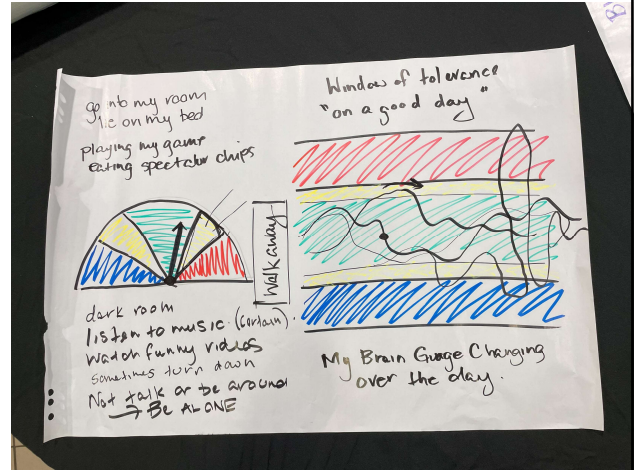 go into my room
lie on my bed
playing my game
eating chips
Walk away
dark room
listen to music (certain).
watch funny videos
sometimes turn down
Not talk or be around
→ BE ALONE
Window of tolerance
"on a good day"
My Brain Guage Changing
over the day.